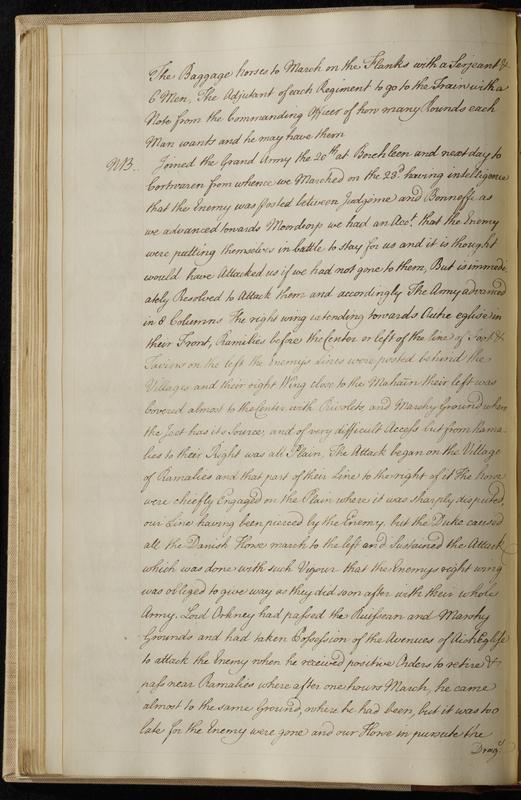 The Baggage horses to March on the Flanks with a Serjeant &
6 Men, The Adjutant of each Regiment to go to the Train with a
Note from the Commanding Officer of how many Rounds each
Man wants and he may have them
NB.. Joined the Grand Army the 20th at Borchleen and next day to
Cortwaren from whence we Marched on the 23d having intelligence
that the Enemy was posted between Judgome and Bonneffe as
we advanced towards Mourdorp we had an Acct. that the Enemy
were putting themselves in battle to stay for us and it is thought
would have Attacked us if we had not gone to them, But is immedi
ately Resolved to Attack them and accordingly The Army advanced
in 8 Columns The right wing extending towards Autre eglise in
their Front, Ramilies before the Center or left of the line of Foot &
Taviere on the left the Enemys Lines were posted behind the
Villages and their right Wing close to the Mahain their left was
Covered almost to the Center with Rivolets and Marshy Ground where
the Jeet has its Source, and of very difficult Access but from Rama-
lies to their Right was all Plain, The Attack began on the Village
of Ramalies and that part of their Line to the right of it The horse
were chiefly Engaged on the Plain where it was sharply disputed,
our Line having been pierced by the Enemy. but the Duke caused
all the Danish Horse march to the left and Sustained the Attack
which was done with such Vigour that the Enemys right wing
was obliged to give way as they did soon after with their whole
Army. Lord Orkney had passed the Ruissean and Marshy
Grounds and had taken Possession of the Avenues of Autr Eglise
to attack the Enemy when he received positive Orders to retire &
pass near Ramalies where after one hours March, he came
almost to the same Ground, where he had been, but it was too
late for the Enemy were gone and our Horse in pursuite the
Dragd